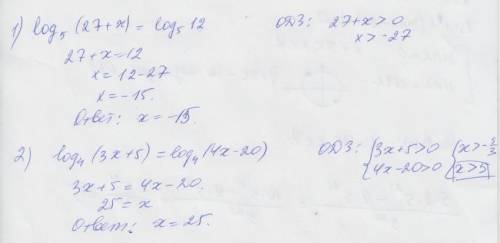 1) log₅ (27+x) = log₅ 12    ОДЗ: 27+x>0
x>-27
27+x=12
x=12-27
x=-15.
Ответ: x=-15.
2) log₄ (3x+5) = log₄ (4x-20)    ОДЗ: {3x+5>0 {x>-5/3
{4x-20>0 {x>5
3x+5=4x-20.
25=x
Ответ: x=25.